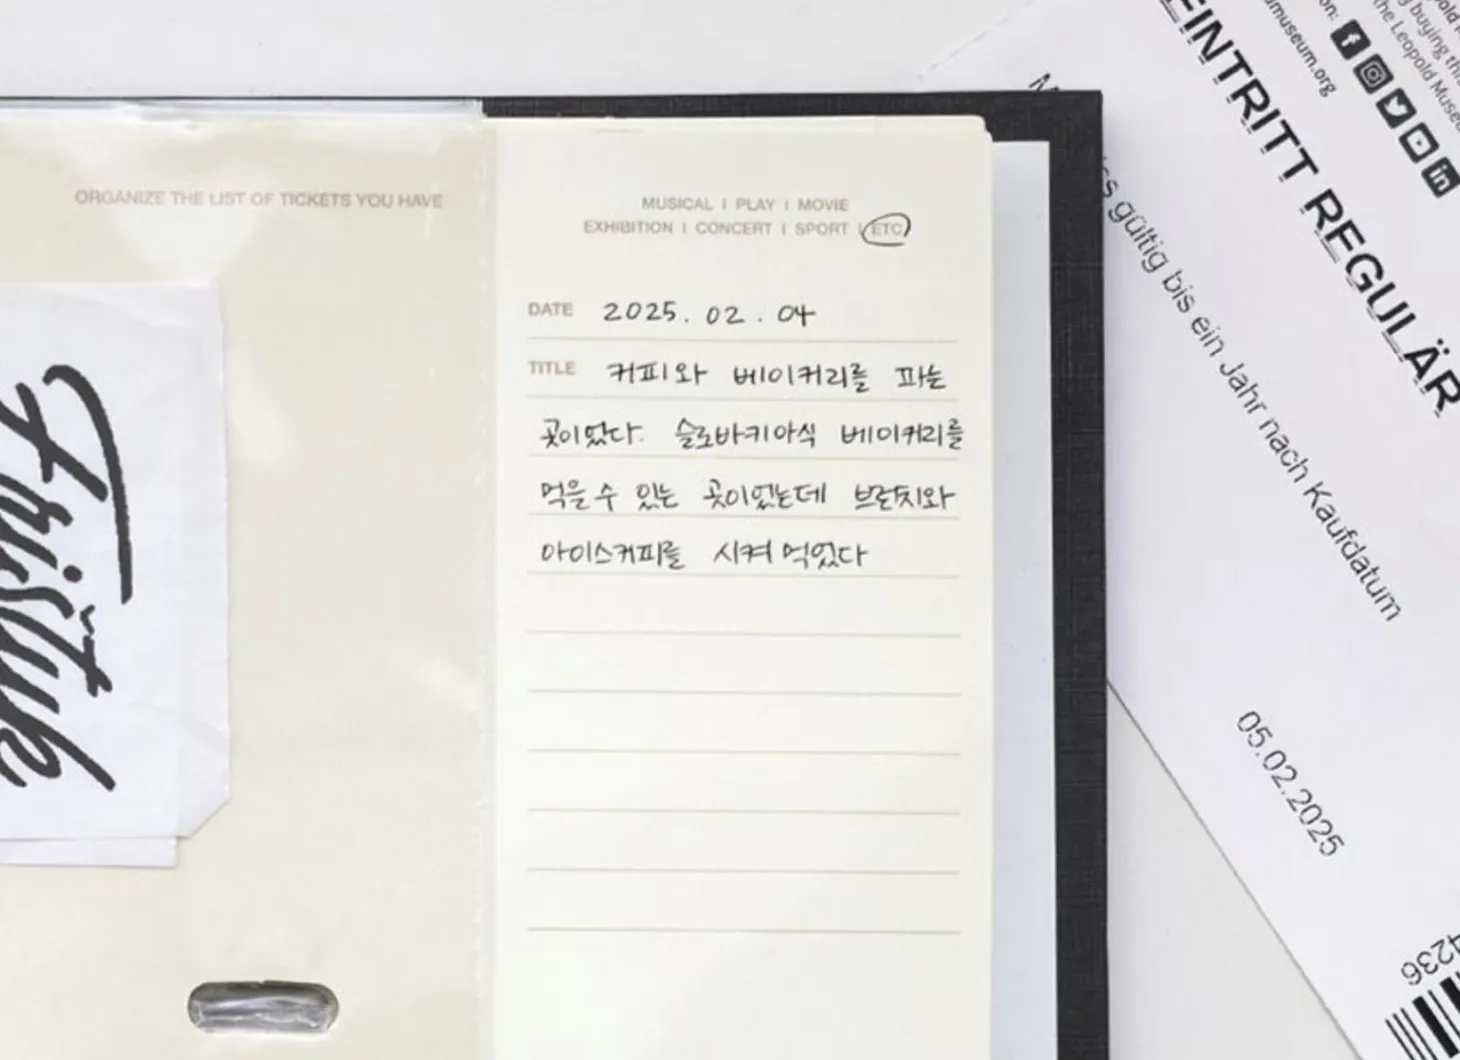 ORGANIZE THE LIST OF TICKETS YOU HAVE
MUSICAL I PLAY I MOVIE
EXHIBITION I CONCERT I SPORT I ETC
DATE 2025. 02. 04
TITLE 커피와 베이커리를 파는
곳이었다. 슬로바키아식 베이커리를
먹을 수 있는 곳이었는데 브런치와
아이스커피를 시켜 먹었다
EINTRITT REGULÄR
museum.org
the Leopold
gültig bis ein Jahr nach Kaufdatum
05.02.2025
4236